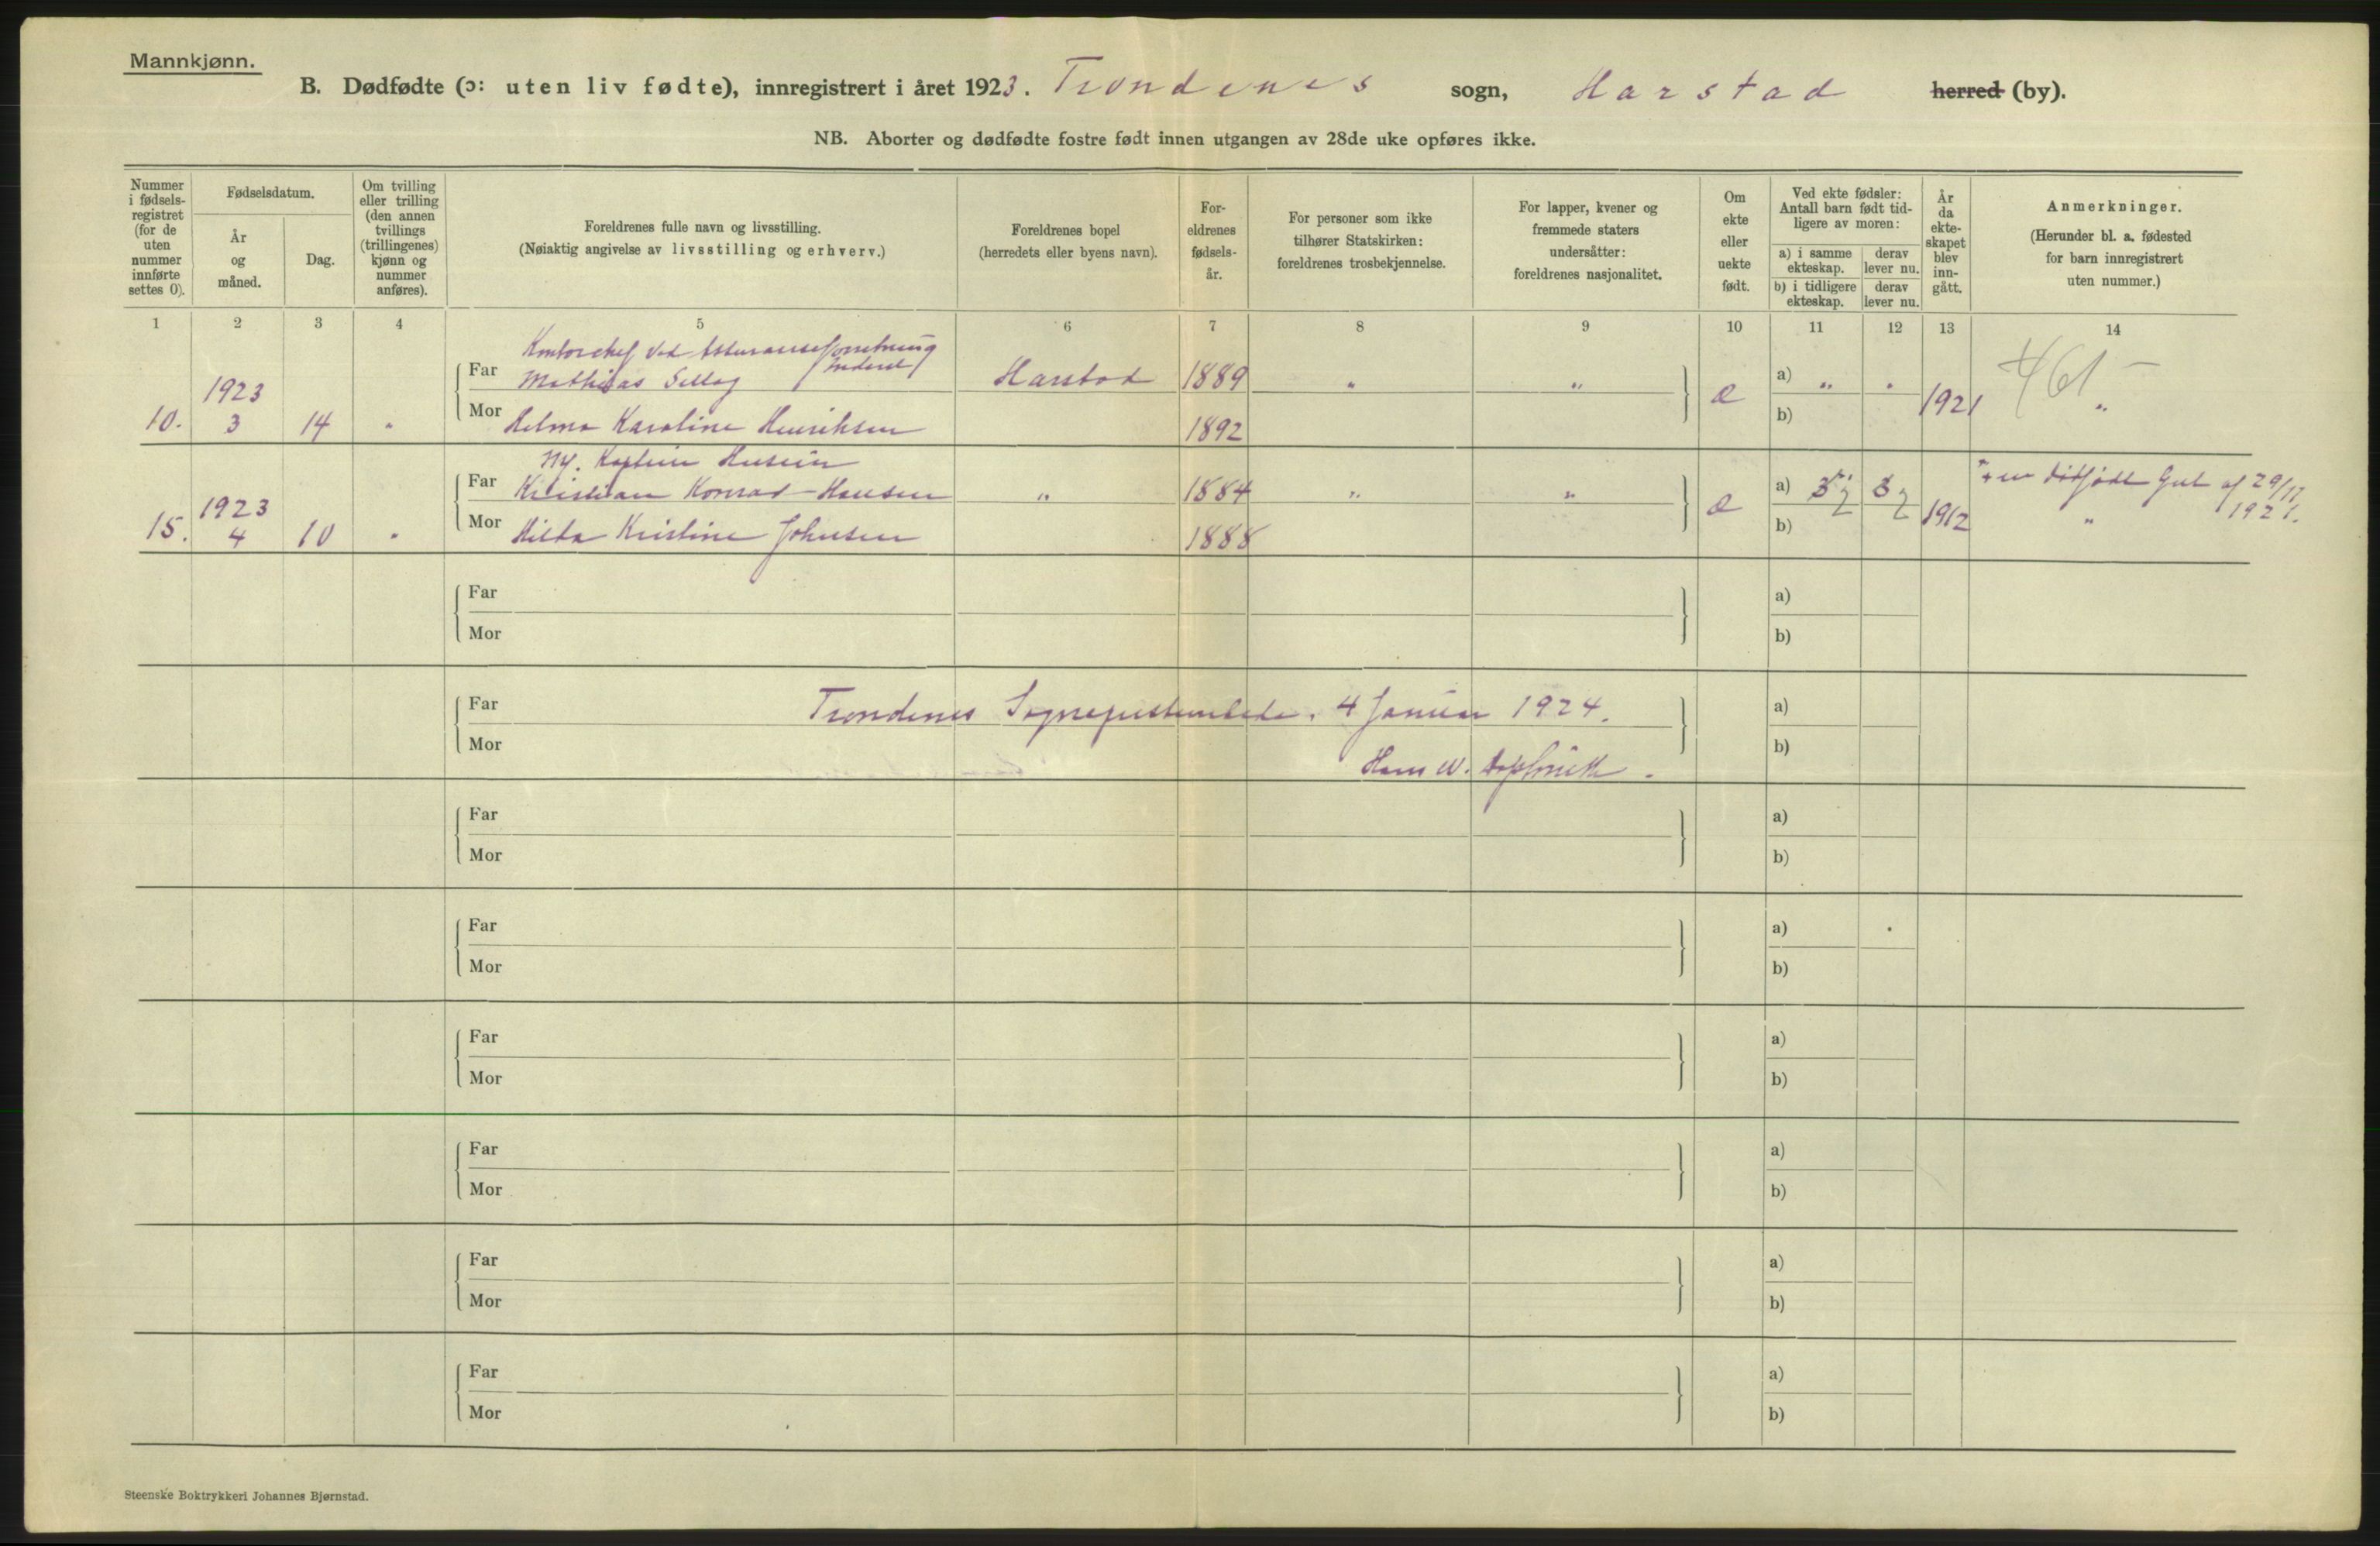 Mannkjønn.
B. Dødfødte (ɔ: uten liv fødte), innregistrert i året 1923. Trondenes sogn, Harstad herred (by).
NB. Aborter og dødfødte fostre født innen utgangen av 28de uke opføres ikke.
Nummer i fødsels-registret (for de uten nummer innførte settes 0).
Fødselsdatum.
År og måned.
Dag.
Om tvilling eller trilling (den annen tvillings (trillingenes) kjønn og nummer anføres).
Foreldrenes fulle navn og livsstilling.
(Nøiaktig angivelse av livsstilling og erhverv.)
Foreldrenes bopel
(herredets eller byens navn).
For-eldrenes fødsels-år.
For personer som ikke tilhører Statskirken: foreldrenes trosbekjennelse.
For lapper, kvener og fremmede staters undersåtter: foreldrenes nasjonalitet.
Om ekte eller uekte født.
Ved ekte fødsler: Antall barn født tid-ligere av moren:
a) i samme ekteskap.
derav lever nu.
b) i tidligere ekteskap.
derav lever nu.
År da ekte-skapet blev inn-gått.
Anmerkninger.
(Herunder bl. a. fødested for barn innregistrert uten nummer.)
1 2 3 4 5 6 7 8 9 10 11 12 13 14
Kontorchef ved Assuranceforretning
Far Mathias Harstad 1889 " " a) " "
10. 1923 3 14 " Mor Helma Karoline Henriksen 1892 b) 1921 "
461 –
Far Kristian Konrad Hansen " 1884 " " a)
15. 1923 4 10 " Mor Hilda Kristine Johnsen 1888 b) 1912 "
dødfødt Gut af 29/11 1921.
Far a)
Mor b)
Far Trondenes Sogneprestembede, 4 Januar 1924. a)
Mor b)
Hans W.
Far a)
Mor b)
Far a)
Mor b)
Far a)
Mor b)
Far a)
Mor b)
Far a)
Mor b)
Far a)
Mor b)
Steenske Boktrykkeri Johannes Bjørnstad.